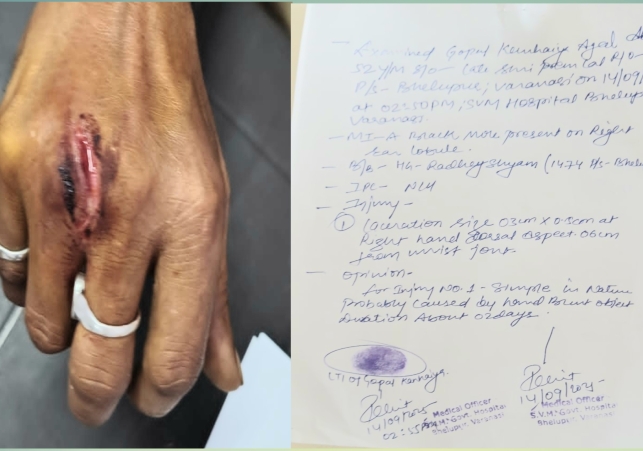 — Examined Gopal Kanhaiya Aged
52Y/M S/O - Late Shri Prem Lal R/O-
P/S- Bhelupur, Varanasi on 14/09/
at 02:50PM, SVM Hospital Bhelupur
Varanasi.
— MI - A Black Mole present on Right
Ear lobule.
— B/B - HG - Radheyshyam (1474 P/S - Bhelu
— IPC - NCR
— Injury -
① laceration size 03cm X 0.5cm at
Right hand dorsal aspect. 06cm
from wrist joint.
— Opinion -
for Injury No. 1 - Simple in Nature
Probably caused by hard Blunt object
Duration About 02days.
LTI of Gopal Kanhaiya.
14/09/2025
02:55PM
Medical Officer
S.V.M. Govt. Hospital
Bhelupur, Varanasi
14/09/2025
Medical Officer
S.V.M. Govt. Hospital
Bhelupur, Varanasi